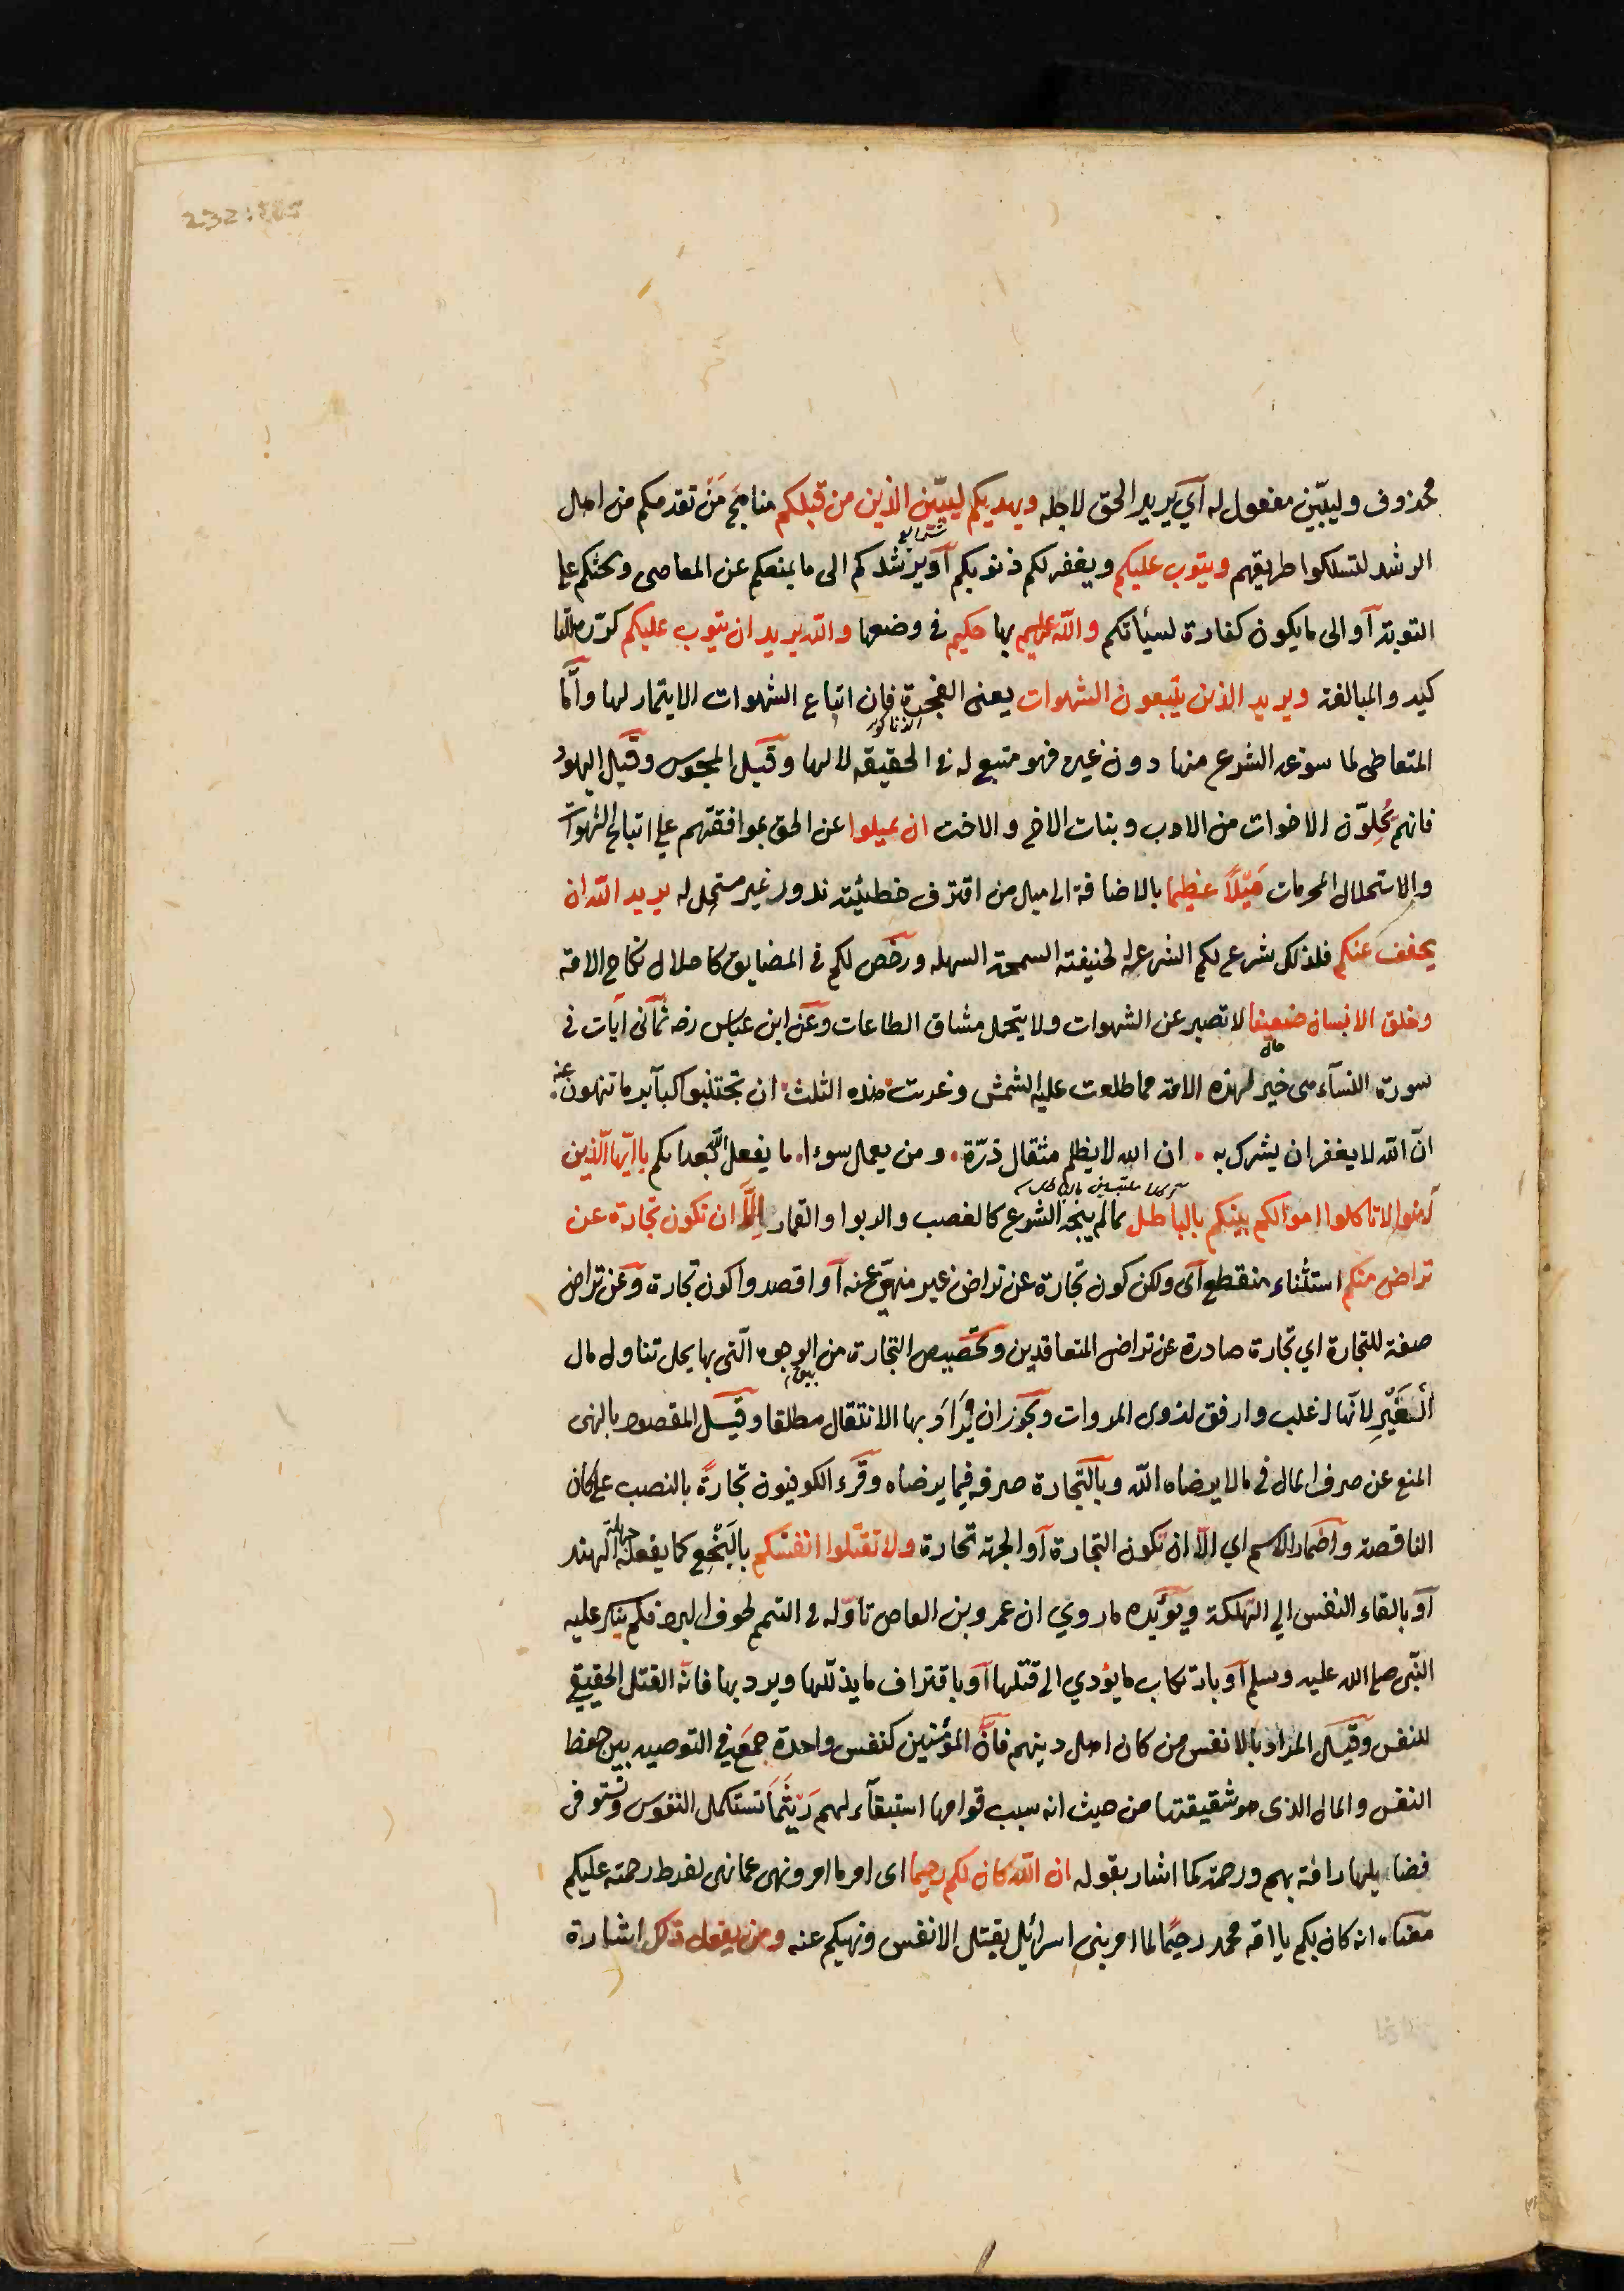 محذوف وليبيّن مفعول له آي يريد الحق لاجله ويهديكم ليبيّن الذين من قبلكم مناهج مَنْ تقدمكم من اهل
الرشد لتسلكوا طريقهم ويتوب عليكم ويغفر لكم ذنوبكم آو يرشدكم الى ما يمنعكم عن المعاصى ويحثكم على
التوبة آو الى ما يكون كفارة لسيأتكم والله عليم بها حكيم فى وضعها والله يريد ان يتوب عليكم كرّره للتا
كيد والمبالغة ويريد الذين يتّبعون الشهوات يعنى الفجرة فإن اتباع الشهوات الايتمار لها وأمّا
المتعاطى لما سوّغه الشرع منها دون غيره فهو متبع له فى الحقيقه لا لها وقيل المجوس وقيل اليهود
فانهم يُحِلوّن الاخوات من الاب وبنات الاخ والاخت ان تميلوا عن الحق بموافقتهم على اتباع الشهوات
والاستحلال المحرمات مَيْلًا عظيما بالاضافة الى ميل من اقترف خطيئته ندور غير مستحل له يريد الله ان
يخفف عنكم فلذلك شرع لكم الشرعة لحنيفته السمحة السهله ورخّص لكم فى المضايق كاحلال نكاح الامة
وخلق الانسان ضعيفا لا تصبر عن الشهوات ولا يتحمل مشاق الطاعات وعن ابن عباس رضه ثمآنى آيات فى
سورة النسآء هى خير لهذه الامة مما طلعت عليه الشمش وغربت هذه الثلث ان تجتنبوا كبآير ما تنهون عنه
انّ الله لا يغفر ان يشرك به . ان الله لا يظلم مثقال ذرّة . ومن يعمل سوءا . ما يفعل الله بعذابكم يا ايّها الّذين
آمنوا لا تاكلوا اموالكم بينكم بالباطل بمالم يبحه الشرع كالغصب والربوا والقمار إلاَّ ان تكون تجارة عن
تراض منكم استثناء منقطع آى ولكن كون تجارة عن تراض غير منهى عنه آو اقصدوا كون تجارة وعن تراض
صفة للتجارة اي تجارة صادرة عن تراض المتعاقدين وتخصيص التجارة من الوجوه الّتى بها يحل تناول مال
الغَيْرِ لانّها اغلب وارفق لذوى المروات ويجوز ان يُرَادَ بها الانتقال مطلقا وقيل المقصود بالنهى
المنع عن صرف المال فى ما لا يرضاه الله وبالتجارة صرفه فيما يرضاه وقرء الكوفيون تجارةً بالنصب على كان
الناقصة واضمار الاسم اي الّا ان تكون التجارة آو الجهة تجارة ولا تقتلوا انفسكم بالبَخْعِ كما يفعله جهلة الهند
آو بالقاء النفس الي التهلكة ويؤيّده ما روي ان عمرو بن العاص تاوّله فى التيمم لخوف البرد فلم ينكر عليه
النّبى صلى الله عليه وسلم آو بارتكاب ما يؤدي الى قتلها آو باقتراف ما يذلّلها ويرد بها فانّه القتل الحقيقي
للنفس وقيل المراد بالانفس من كان اهل دينهم فانَّ المؤمنين كنفس واحدة جمع فى التوصيه بين حفظ
النفس والمال الذى هو شقيقتها من حيث انه سبب قوامها استبقآء لهم رَيْثَمَا تستكمل النفوس وتستوفى
فضايلها رافة بهم ورحمة كما اشار بقوله ان الله كان بكم رحيما اى امر ما امر ونهى عما نهى لفرط رحمته عليكم
معناه انه كان بكم يا امة محمد رحيمًا لما امر بنى اسرائيل بقتل الانفس ونهيكم عنه ومن يفعل ذلك اشارة